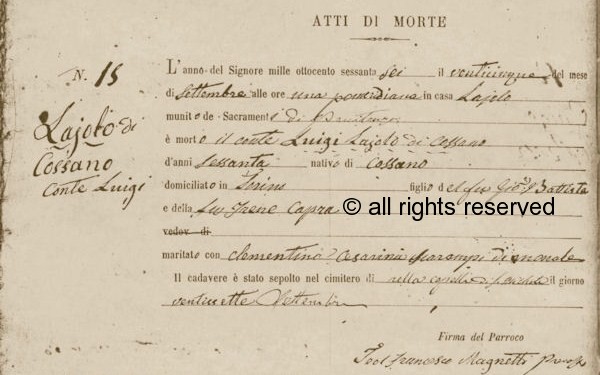 ATTI DI MORTE
N. 15
Lajolo di
Cossano
Conte Luigi
L'anno del Signore mille ottocento sessanta sei il venticinque del mese
di Settembre alle ore una pomeridiana in casa Lajolo
munito de' Sacramenti di
è morto il conte Luigi Lajolo di Cossano
d'anni sessanta nativo di Cossano
domiciliato in Torino figlio del fu Gio. Battista
e della fu Irene Capra
vedov di
maritato con Clementina Cesarina
Il cadavere è stato sepolto nel cimitero di nella il giorno
ventisette Settembre
Firma del Parroco
Teol Francesco Magnetti
© all rights reserved